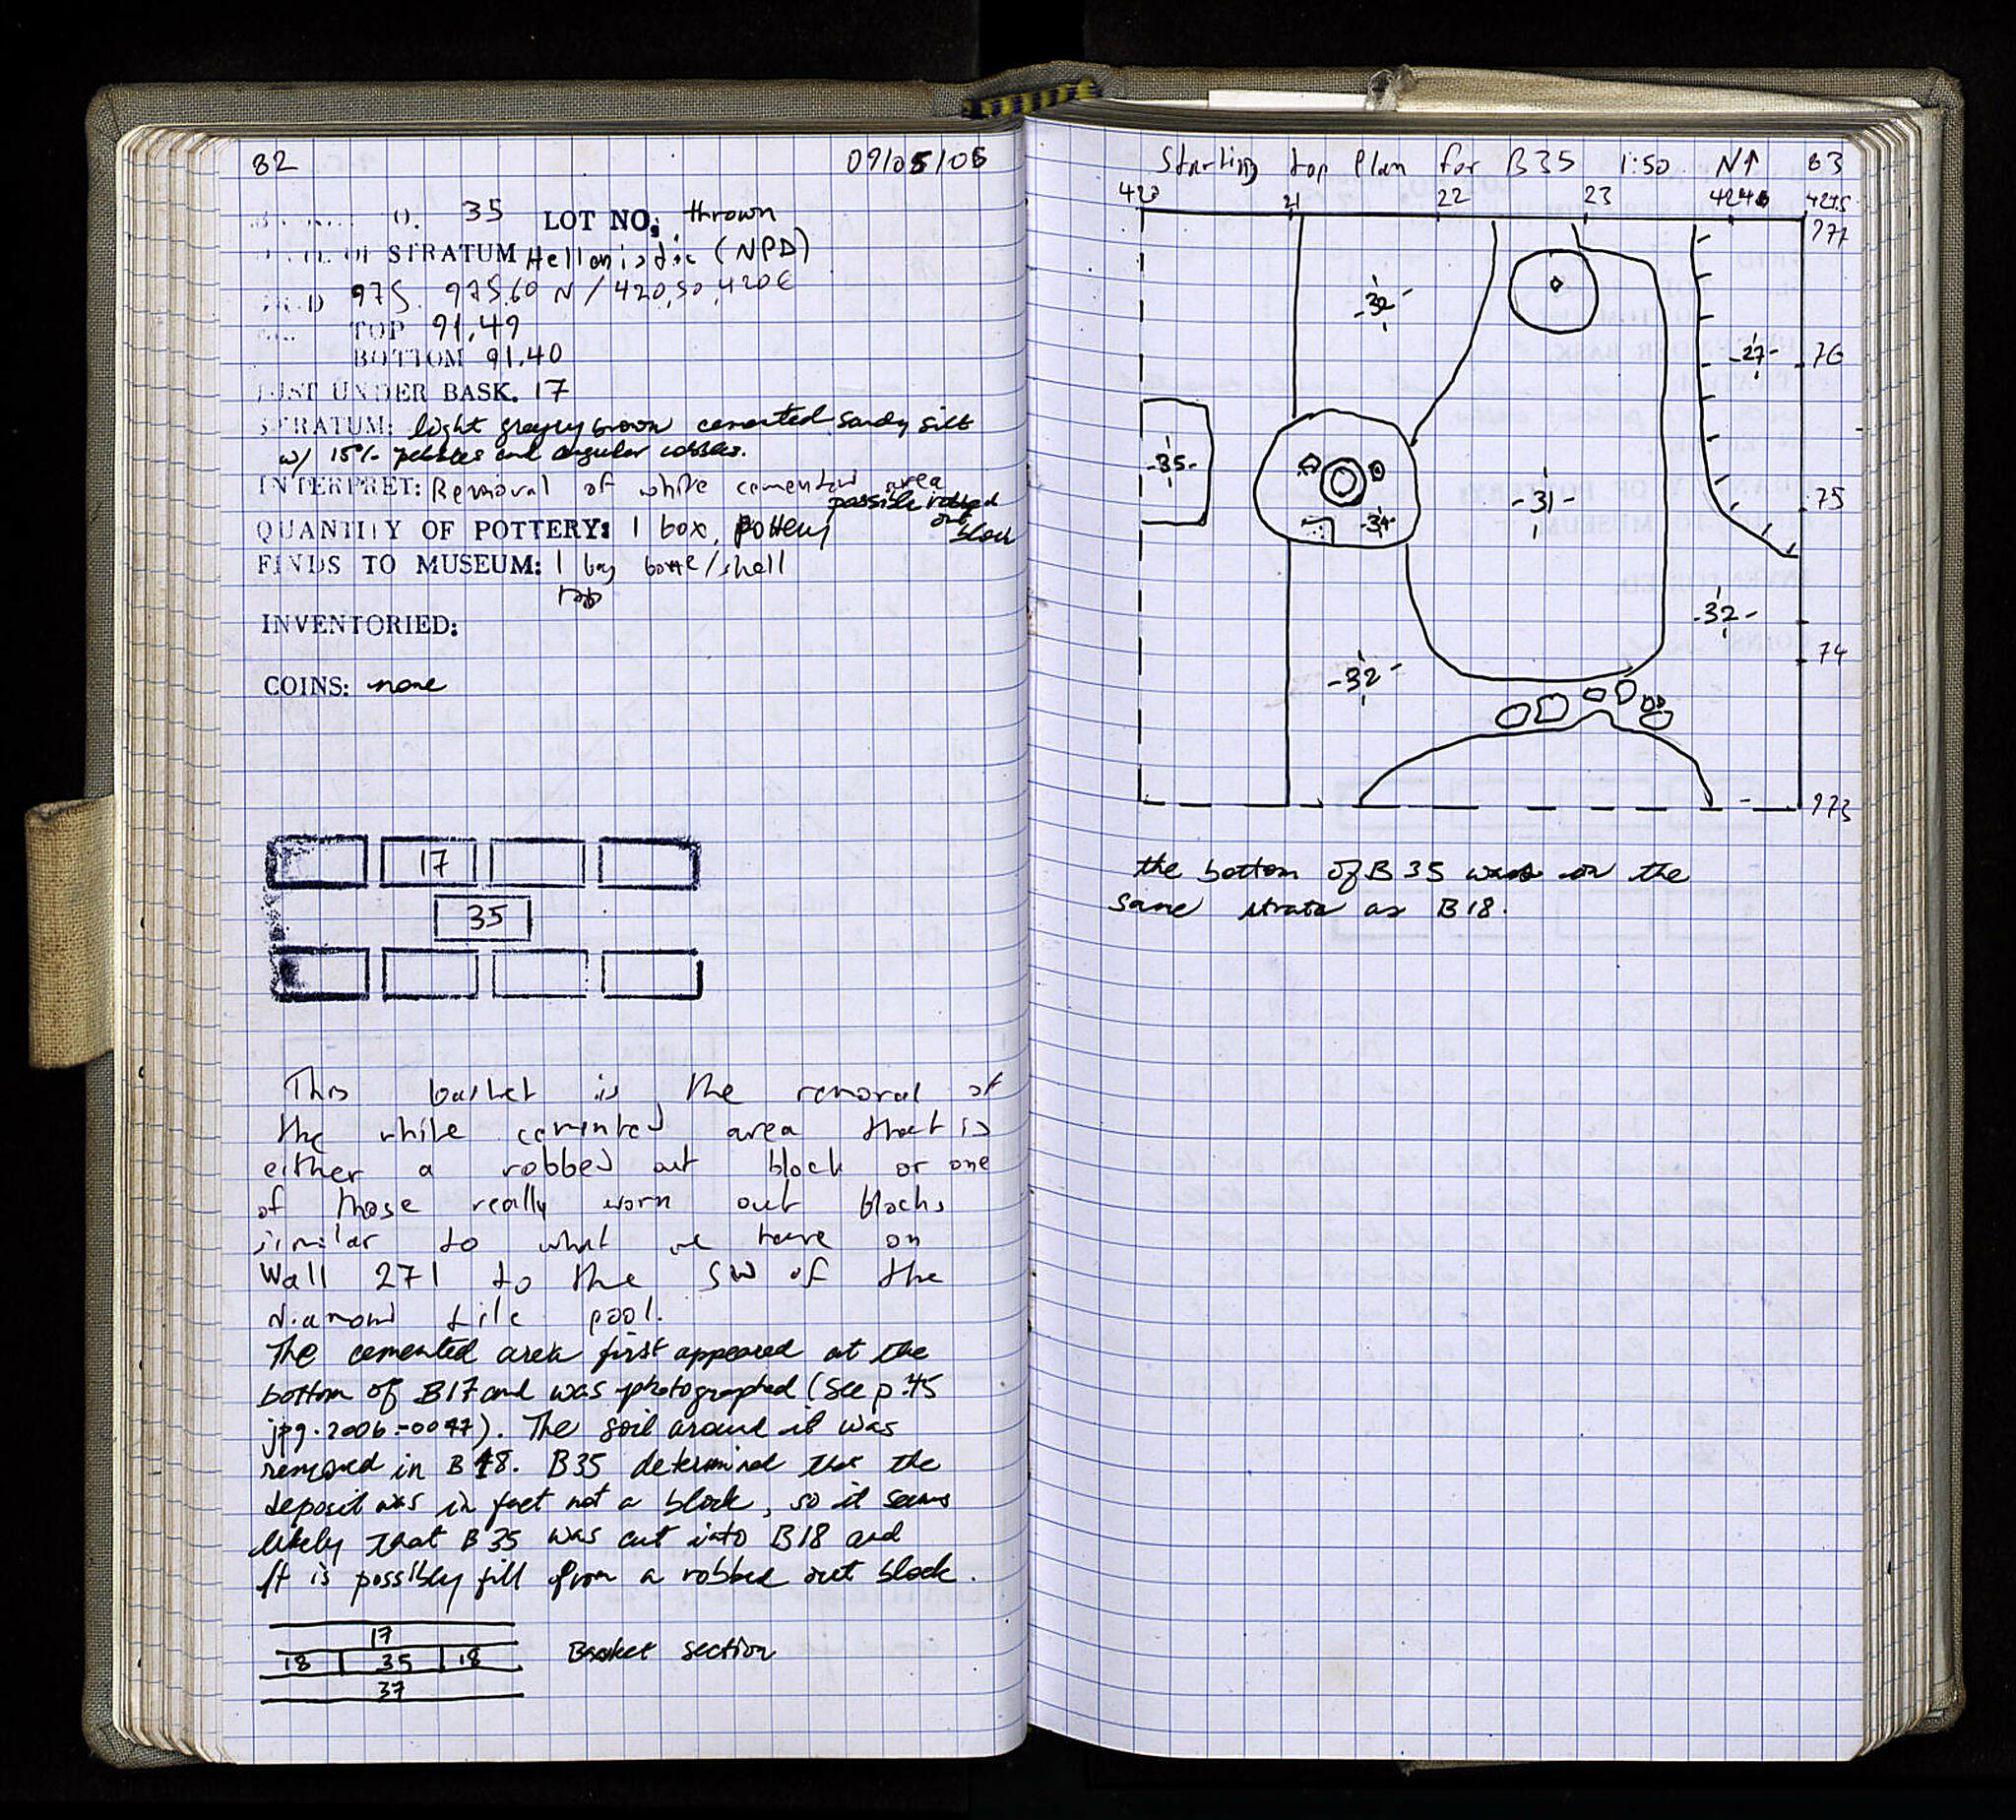 82 09/05/06
35 LOT NO: thrown
STRATUM Hellenistic (NPD)
975. 975.60 N / 420.50, 420 E
TOP 91.49
BOTTOM 91.40
JUST UNDER BASK. 17
STRATUM: light greyey brown cemented sandy silt
w/ 15% pebbles and angular cobbles.
INTERPRET: Removal of white cemented area
possible robbed
out
block
QUANTITY OF POTTERY: 1 box, pottery
FINDS TO MUSEUM: 1 bag bone/shell
INVENTORIED:
COINS: none
17
35
This basket is the removal of
the white cemented area that is
either a robbed out block or one
of those really worn out blocks
similar to what we have on
Wall 271 to the SW of the
diamond tile pool.
The cemented area first appeared at the
bottom of B17 and was photographed (see p.45
jpg.2006-0047). The soil around it was
removed in B18. B35 determined that the
deposit was in fact not a block, so it seems
likely that B35 was cut into B18 and
It is possibly fill from a robbed out block.
17
18 35 18
37
Basket section
Starting top Plan for B35 1:50 N↑ 83
420 21 22 23 424 424.5
977
-32-
-27- 76
-35-
-34-
-31- 75
-32-
74
-32-
973
the bottom of B35 was on the
same strata as B18.